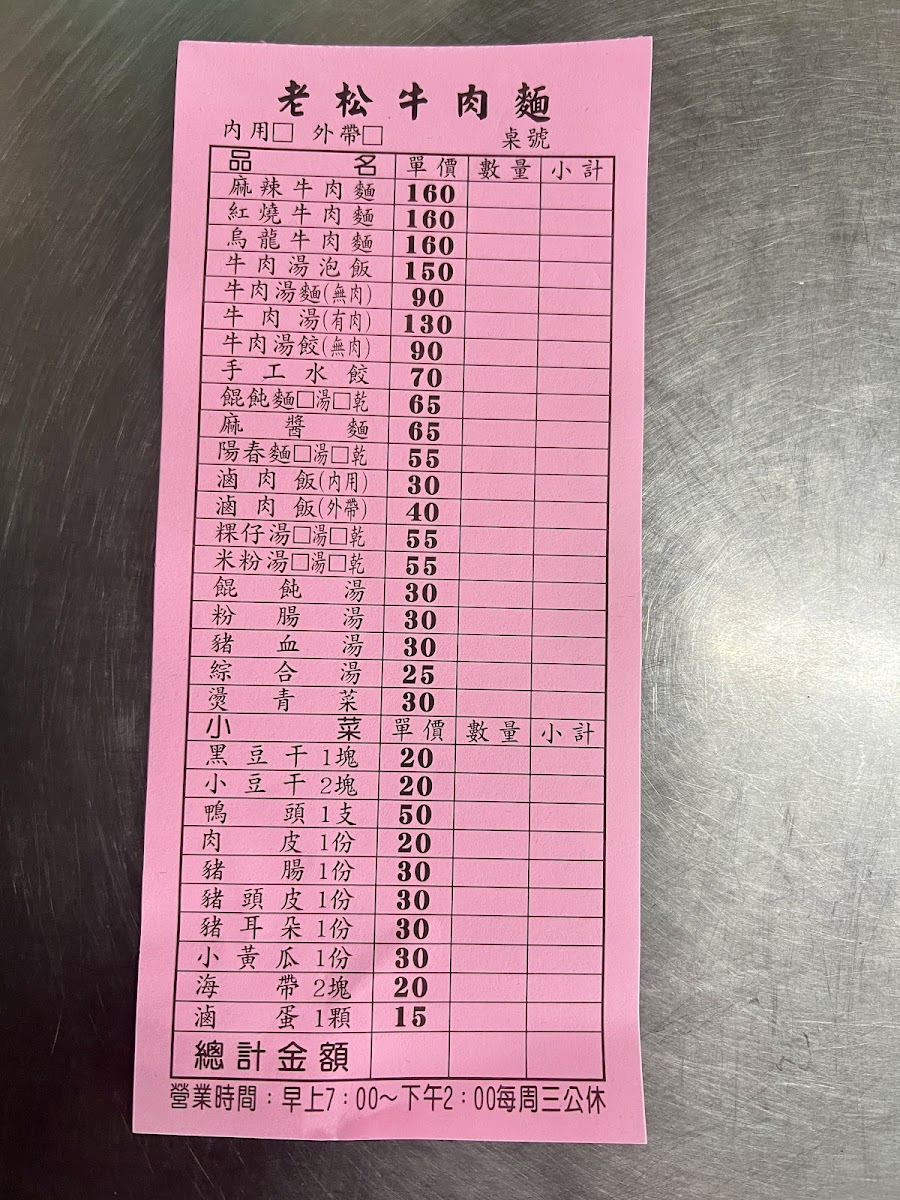 老松牛肉麵
內用□ 外帶□ 桌號
品名 單價 數量 小計
麻辣牛肉麵 160
紅燒牛肉麵 160
烏龍牛肉麵 160
牛肉湯泡飯 150
牛肉湯麵(無肉) 90
牛肉湯(有肉) 130
牛肉湯餃(無肉) 90
手工水餃 70
餛飩麵□湯□乾 65
麻醬麵 65
陽春麵□湯□乾 55
滷肉飯(內用) 30
滷肉飯(外帶) 40
粿仔湯□湯□乾 55
米粉湯□湯□乾 55
餛飩湯 30
粉腸湯 30
豬血湯 30
綜合湯 25
燙青菜 30
小菜 單價 數量 小計
黑豆干1塊 20
小豆干2塊 20
鴨頭1支 50
肉皮1份 20
豬腸1份 30
豬頭皮1份 30
豬耳朵1份 30
小黃瓜1份 30
海帶2塊 20
滷蛋1顆 15
總計金額
營業時間：早上7：00～下午2：00每周三公休